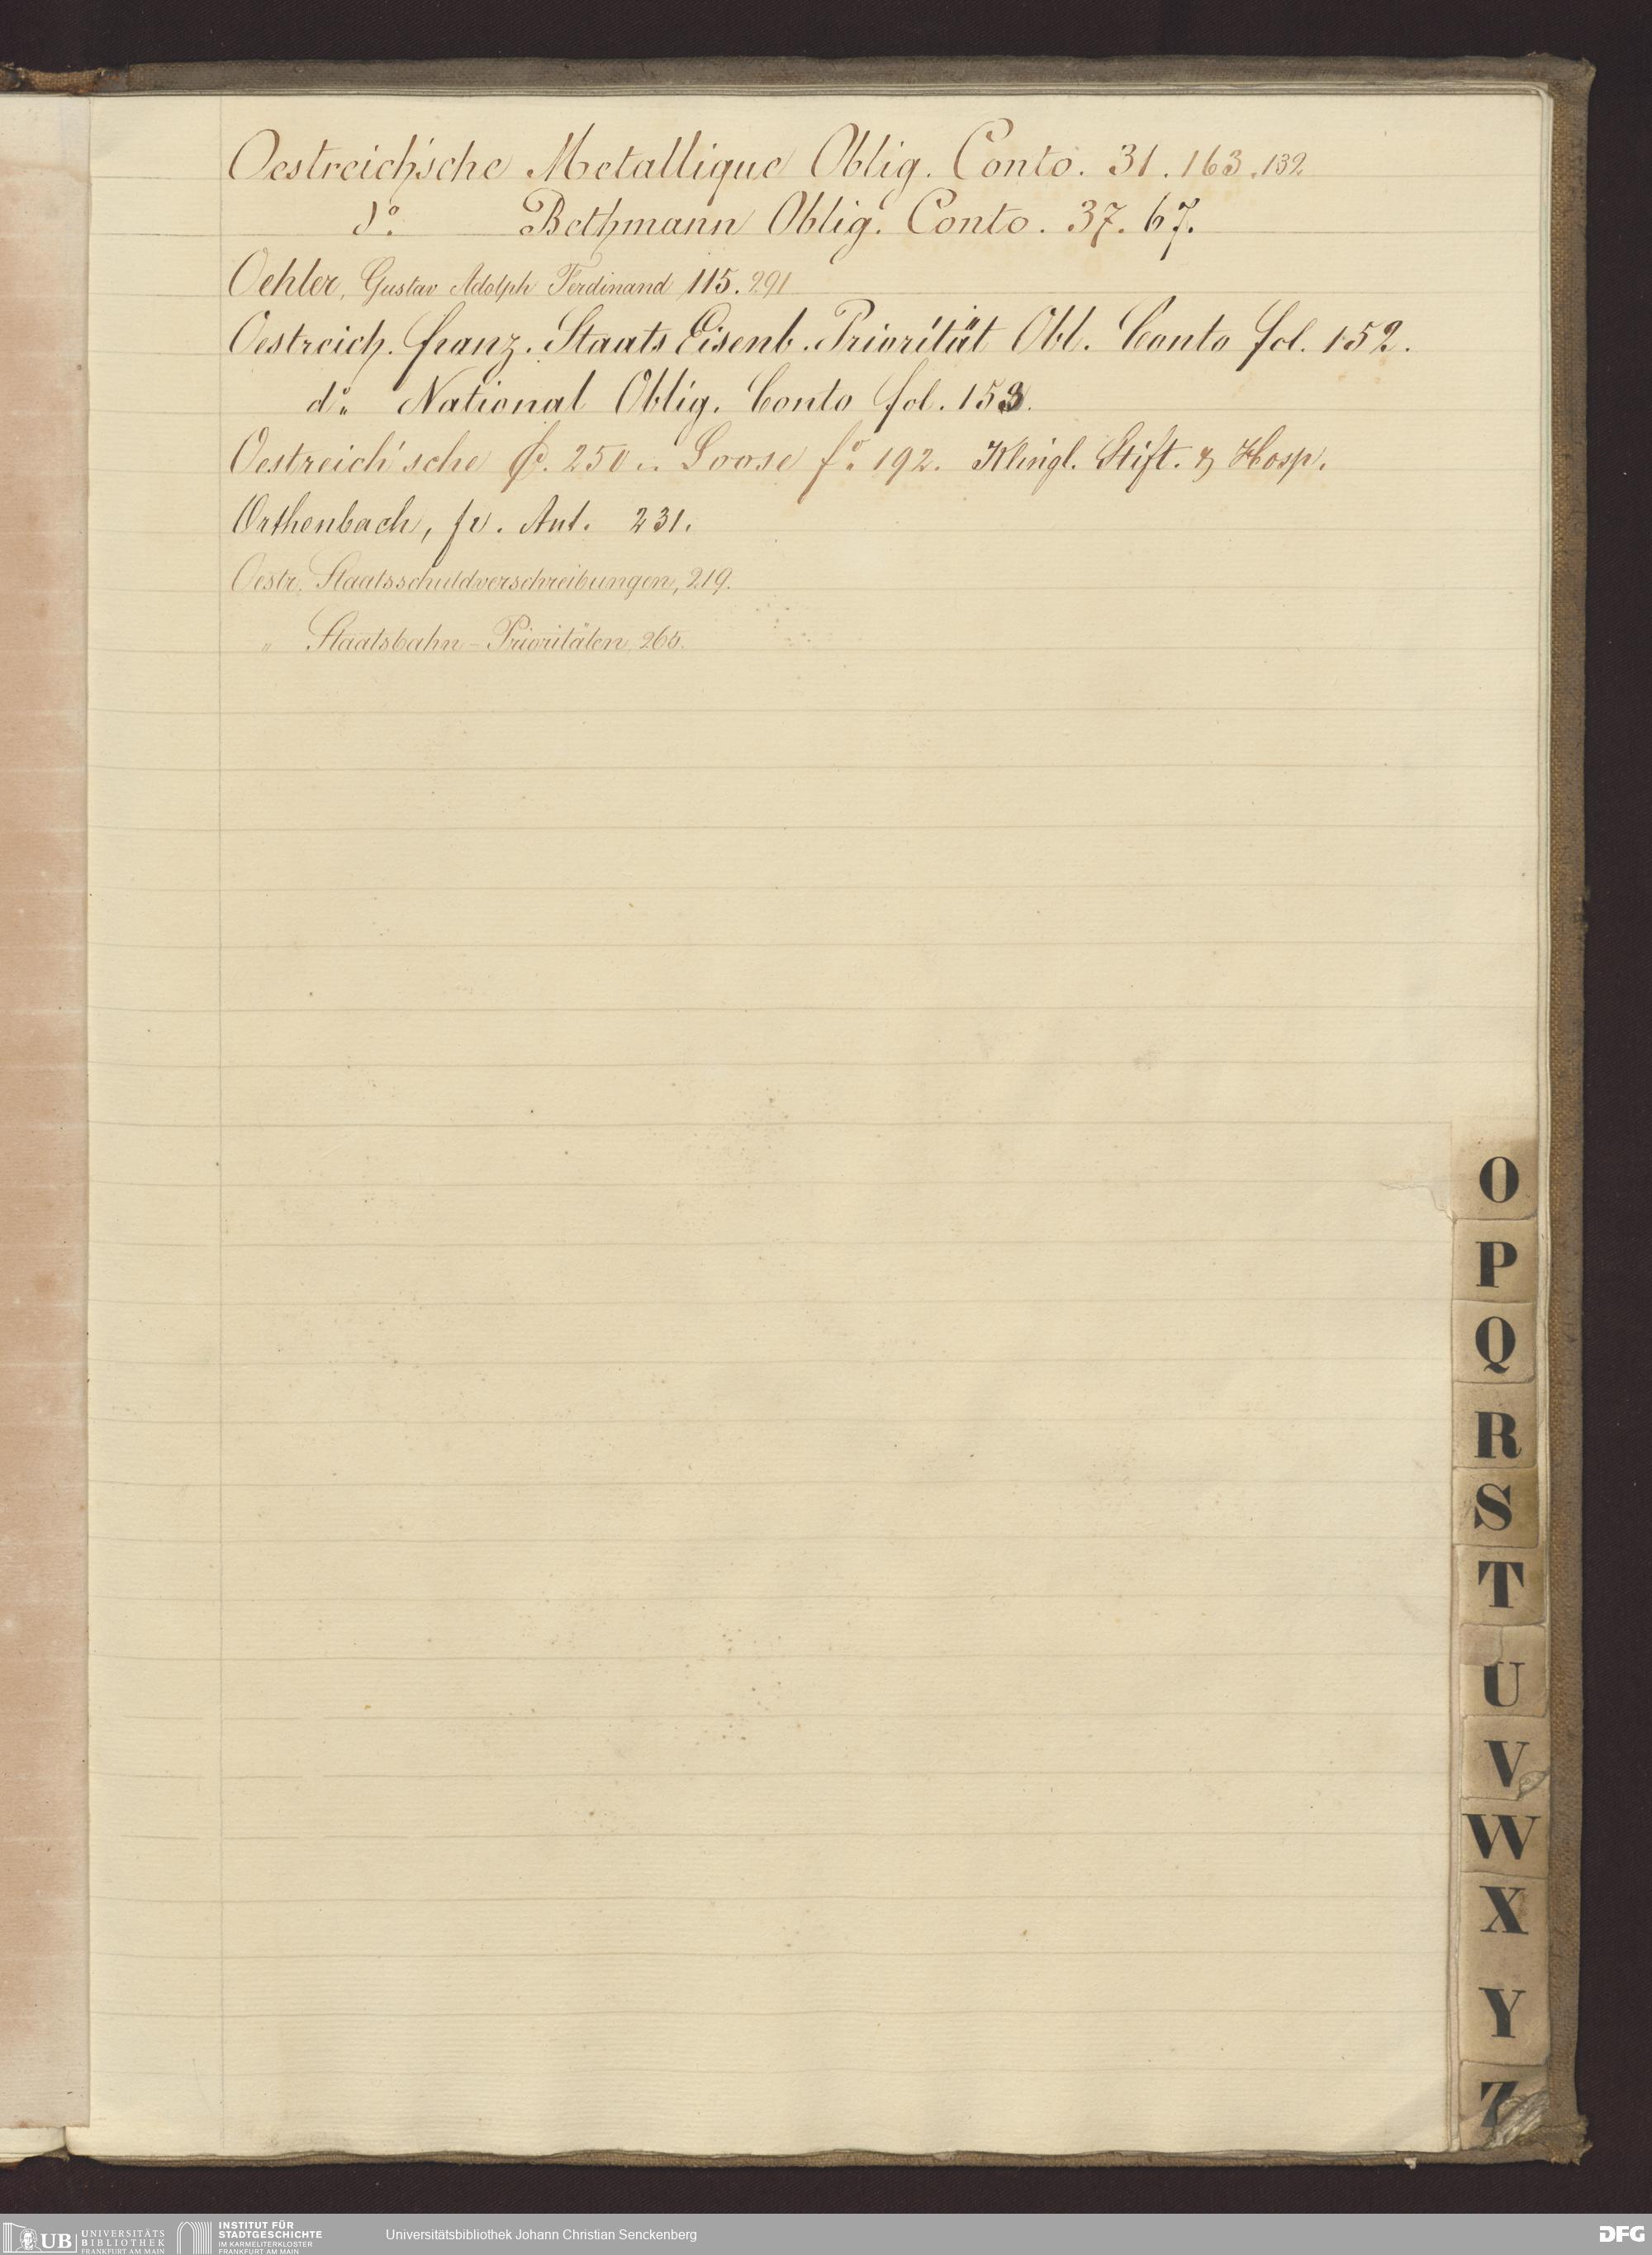 Oestreich'sche Metallique Oblig. Conto. 31. 163. 132
do. Bethmann Oblig. Conto. 37. 67.
Oehler, Gustav Adolph Ferdinand 115. 291
Oestreich. franz. Staats Eisenb. Priorität Obl. Conto fol. 152.
do. National Oblig. Conto fol. 153.
Oestreich'sche 250 Loose fo. 192. Klingl. Stift. & Hosp.
Orthenbach, fr. Ant. 231.
Oestr. Staatsschuldverschreibungen, 219.
" Staatsbahn-Prioritäten, 265.
O
P
Q
R
S
T
U
V
W
X
Y
Z
UB UNIVERSITÄTS BIBLIOTHEK FRANKFURT AM MAIN
INSTITUT FÜR STADTGESCHICHTE IM KARMELITERKLOSTER FRANKFURT AM MAIN
Universitätsbibliothek Johann Christian Senckenberg
DFG